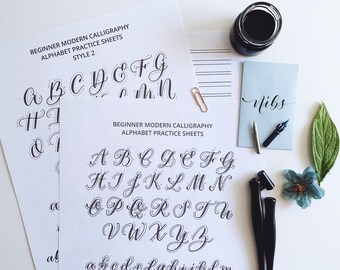 BEGINNER MODERN CALLIGRAPHY
ALPHABET PRACTICE SHEETS
STYLE 2
A B C D E F G
H
BEGINNER MODERN CALLIGRAPHY
ALPHABET PRACTICE SHEETS
A B C D E F G
H I J K L M N
O P Q R S T U
V W X Y Z
a b c d e f g h i j k l m
nibs